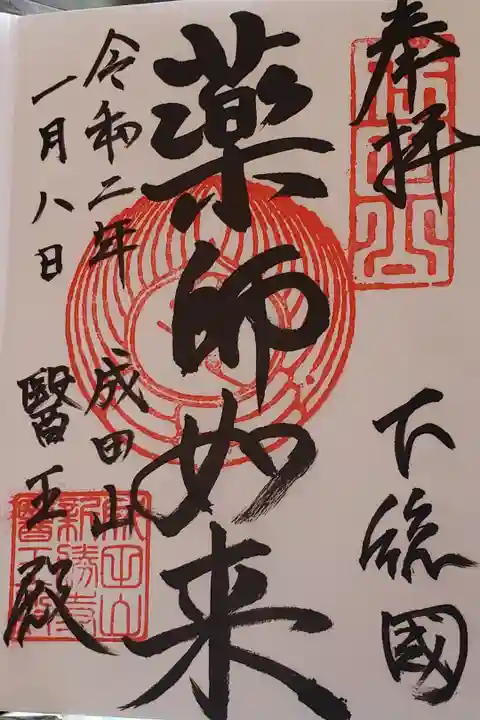 奉拝
下総國
薬師如来
成田山
醫王殿
令和二年
一月八日
成田山
新勝寺
醫王殿